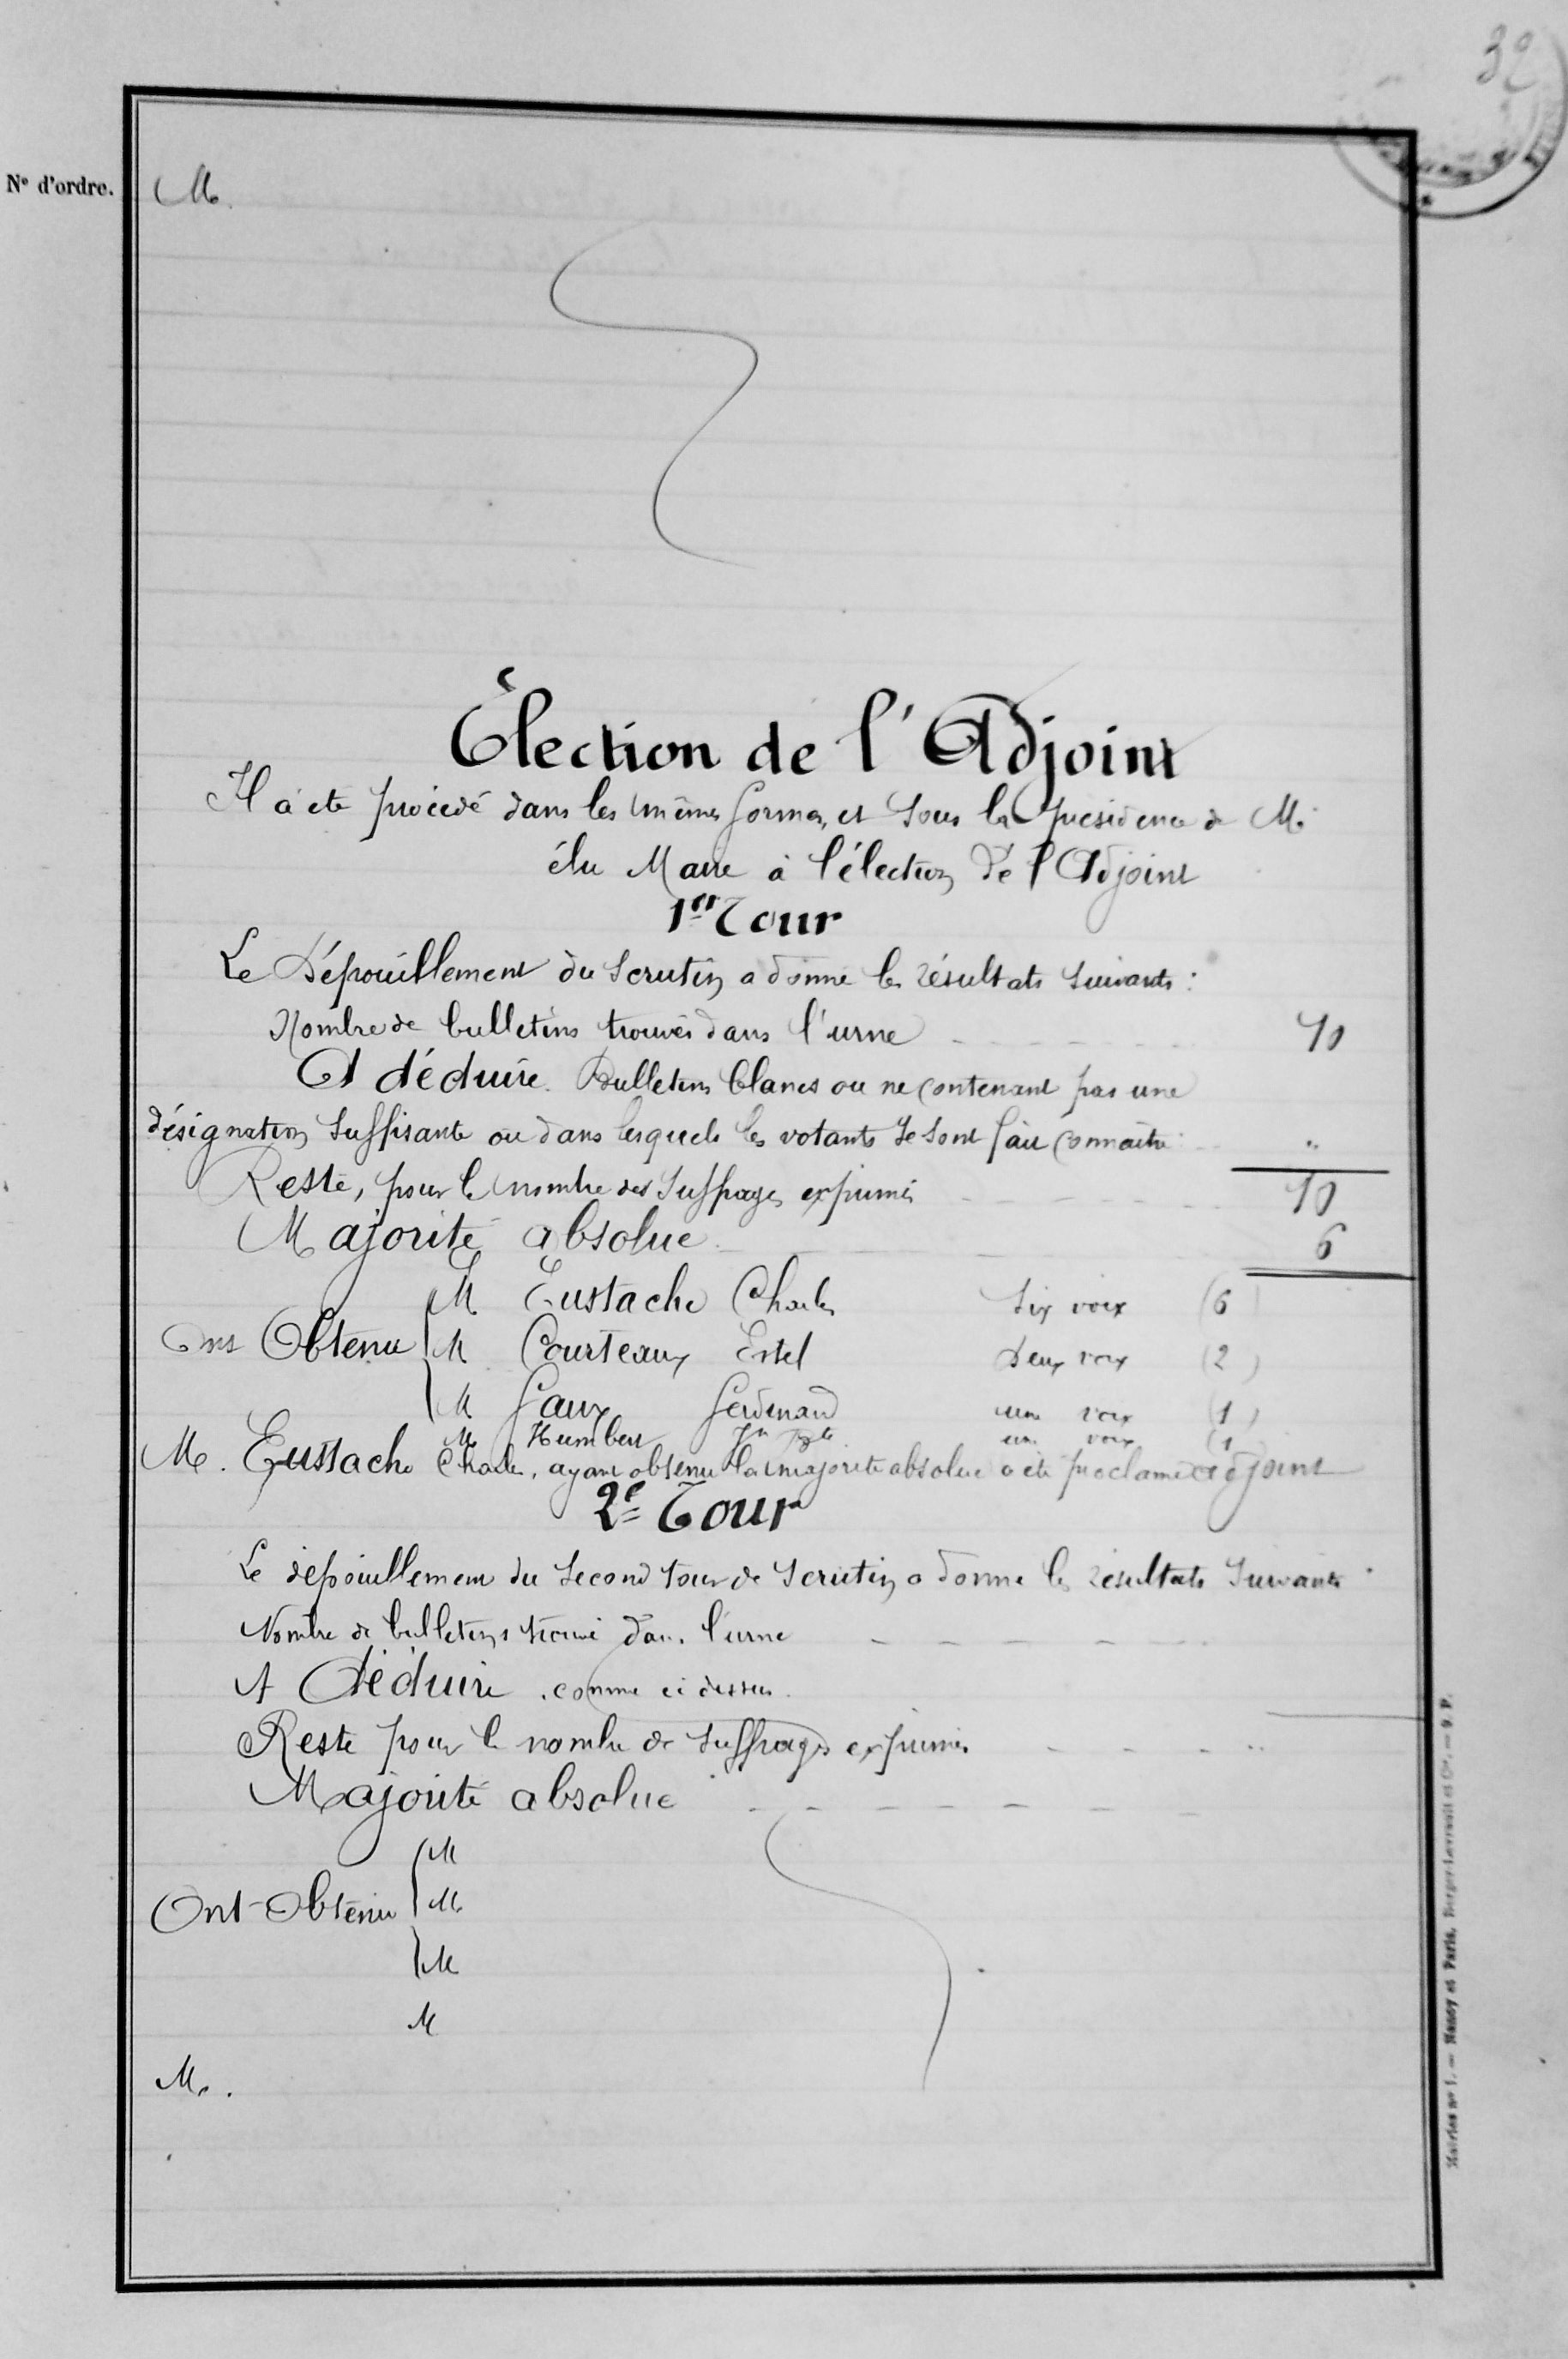 32
N° d'ordre.
M.
Élection de l'Adjoint
Il a été procédé dans les mêmes formes, et sous la présidence de M.
élu Maire à l'élection de l'Adjoint
1er Tour
Le Dépouillement du Scrutin a donné les résultats suivants :
Nombre de bulletins trouvés dans l'urne 10
A déduire. Bulletins blancs ou ne contenant pas une
désignation suffisante ou dans lesquels les votants se sont fait connaître "
Reste, pour le nombre des suffrages exprimés 10
Majorité absolue 6
M Eustache Charles Six voix (6)
Ont Obtenu M Courteaux Estel deux voix (2)
M Gaux Ferdinand une voix (1)
M Humbert une voix (1)
M. Eustache Charles, ayant obtenu la majorité absolue a été proclamé adjoint
2e Tour
Le dépouillement du second tour de scrutin a donné les résultats suivants
Nombre de bulletins trouvé dans l'urne
A Déduire, comme ci dessus.
Reste pour le nombre de suffrages exprimés
Majorité absolue
M
Ont Obtenu M.
M
M
M.
Mairies n° 1. — Nancy et Paris, Berger-Levrault et Cie. — 9. P.